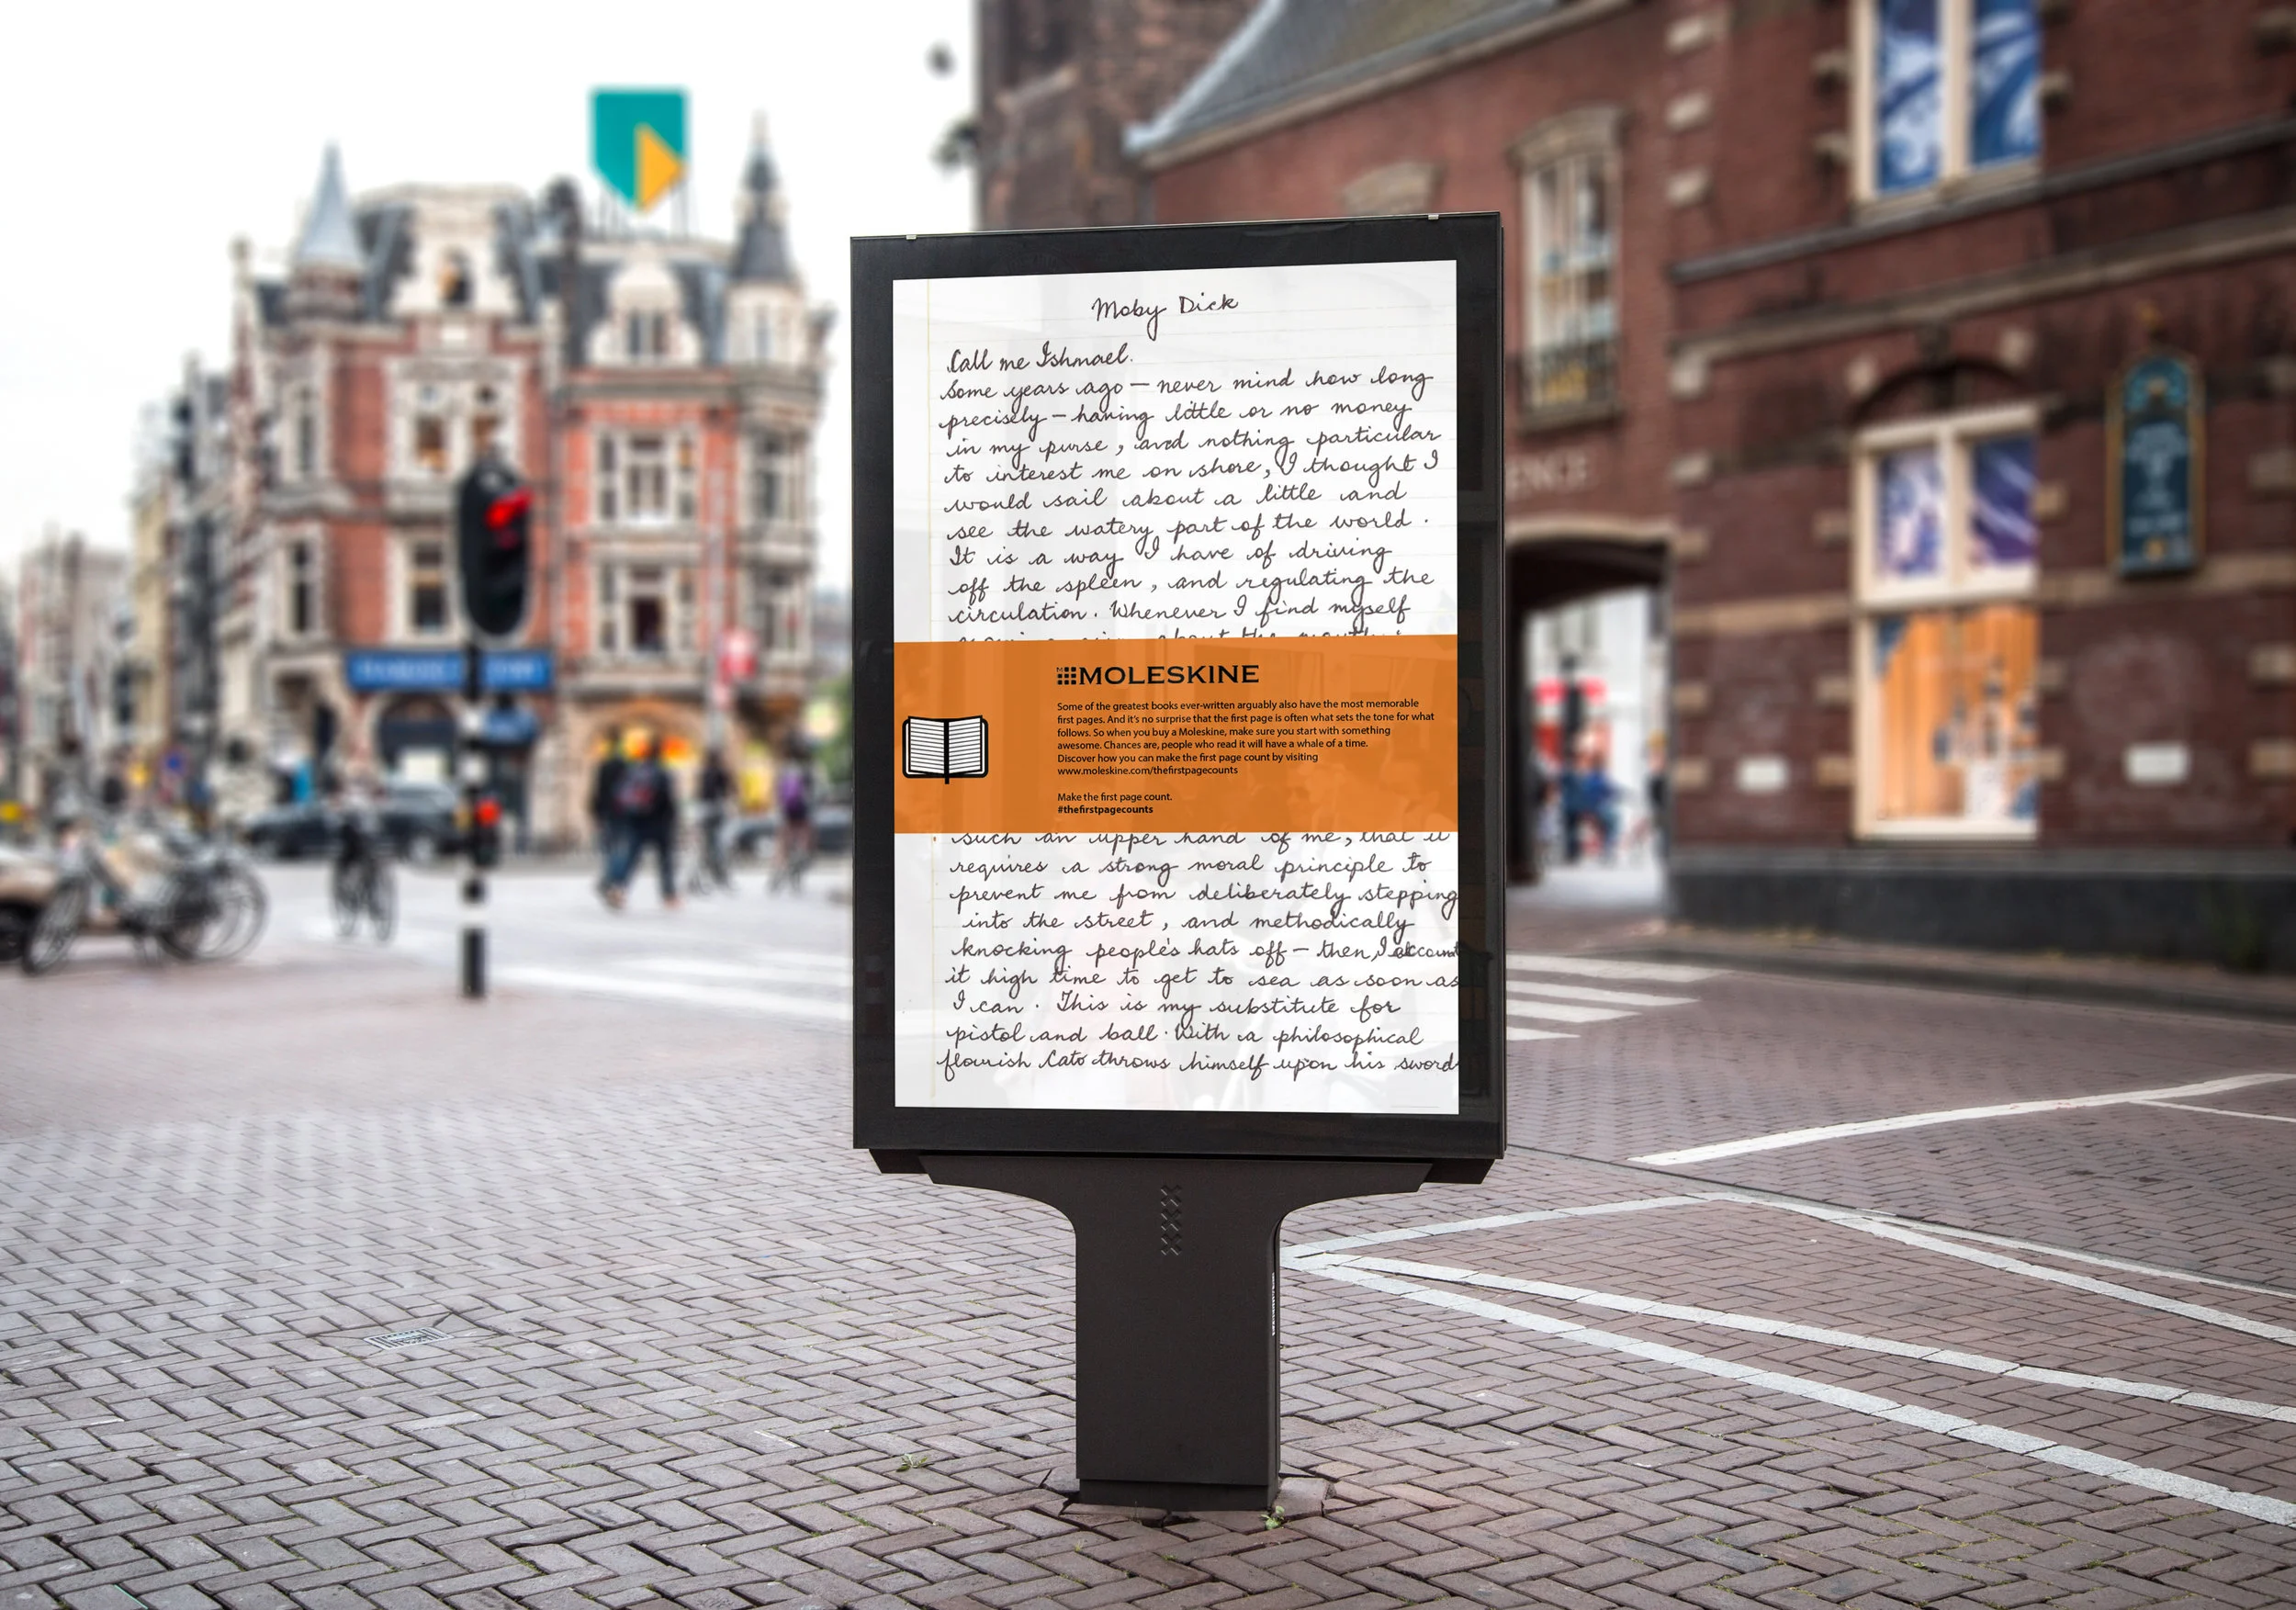 Moby Dick
Call me Ishmael.
Some years ago — never mind how long
precisely — having little or no money
in my purse, and nothing particular
to interest me on shore, I thought I
would sail about a little and
see the watery part of the world.
It is a way I have of driving
off the spleen, and regulating the
circulation. Whenever I find myself
about the
MOLESKINE
Some of the greatest books ever-written arguably also have the most memorable
first pages. And it's no surprise that the first page is often what sets the tone for what
follows. So when you buy a Moleskine, make sure you start with something
awesome. Chances are, people who read it will have a whale of a time.
Discover how you can make the first page count by visiting
www.moleskine.com/thefirstpagecounts
Make the first page count.
#thefirstpagecounts
such an upper hand of me, that it
requires a strong moral principle to
prevent me from deliberately stepping
into the street, and methodically
knocking people's hats off — then, I account
it high time to get to sea as soon as
I can. This is my substitute for
pistol and ball. With a philosophical
flourish Cato throws himself upon his sword